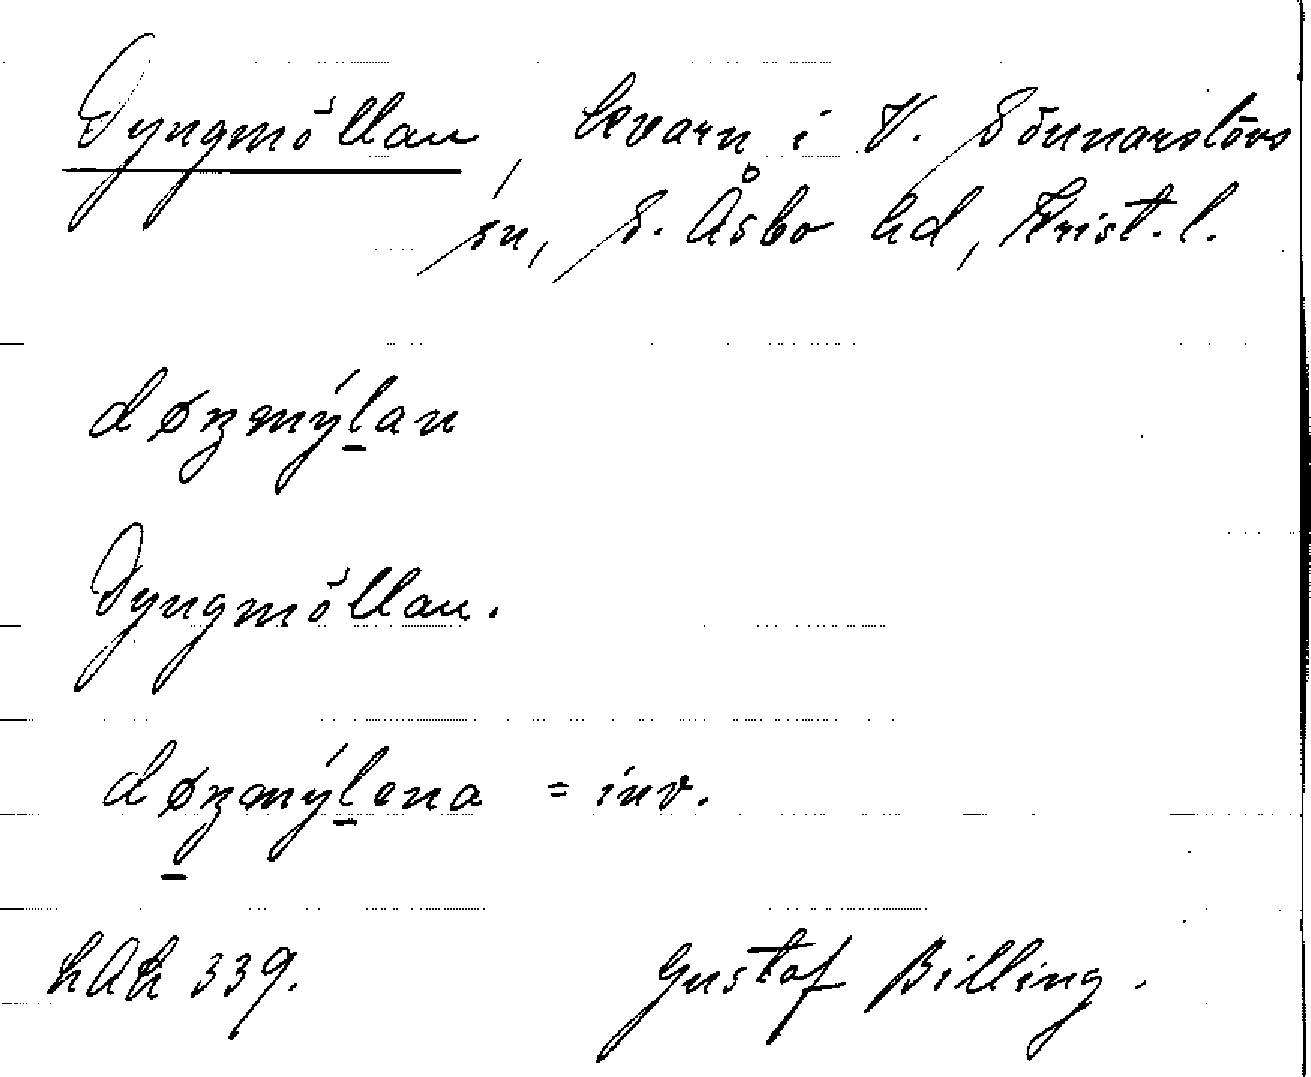 Dyngmöllan, kvarn i V. Sönnarslövs
sn, S. Åsbo hd, Krist. l.
døŋmýlan
Dyngmöllan.
døŋmýlena = inv.
339.
Gustaf Billing.